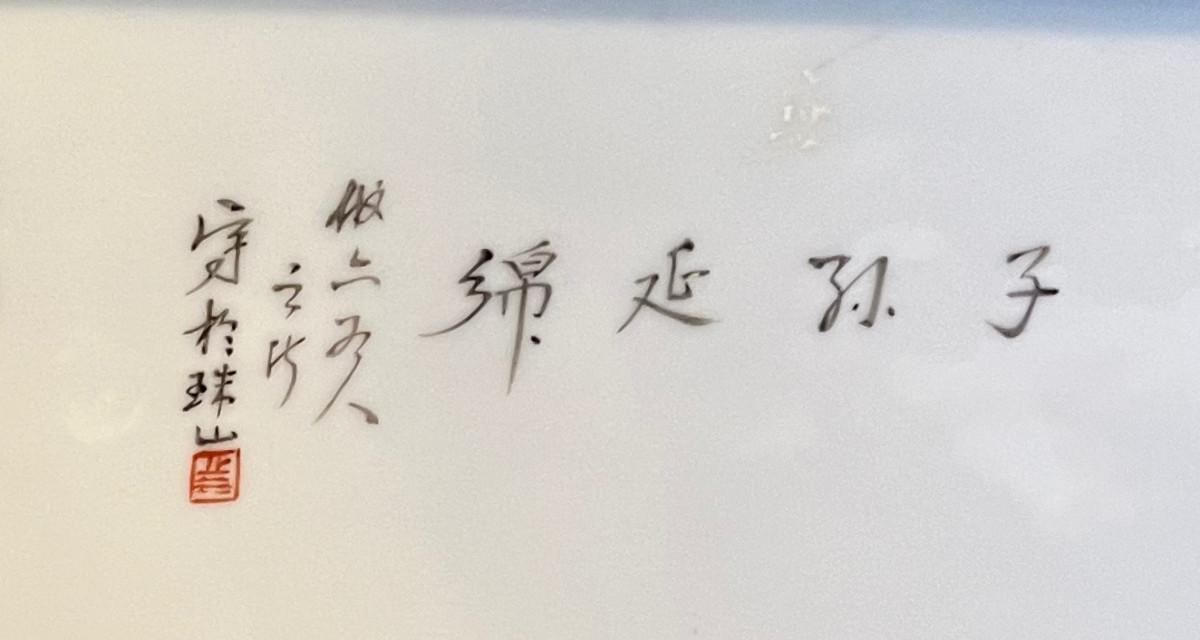 子孫延綿
倣六如人
之作
寫於珠山